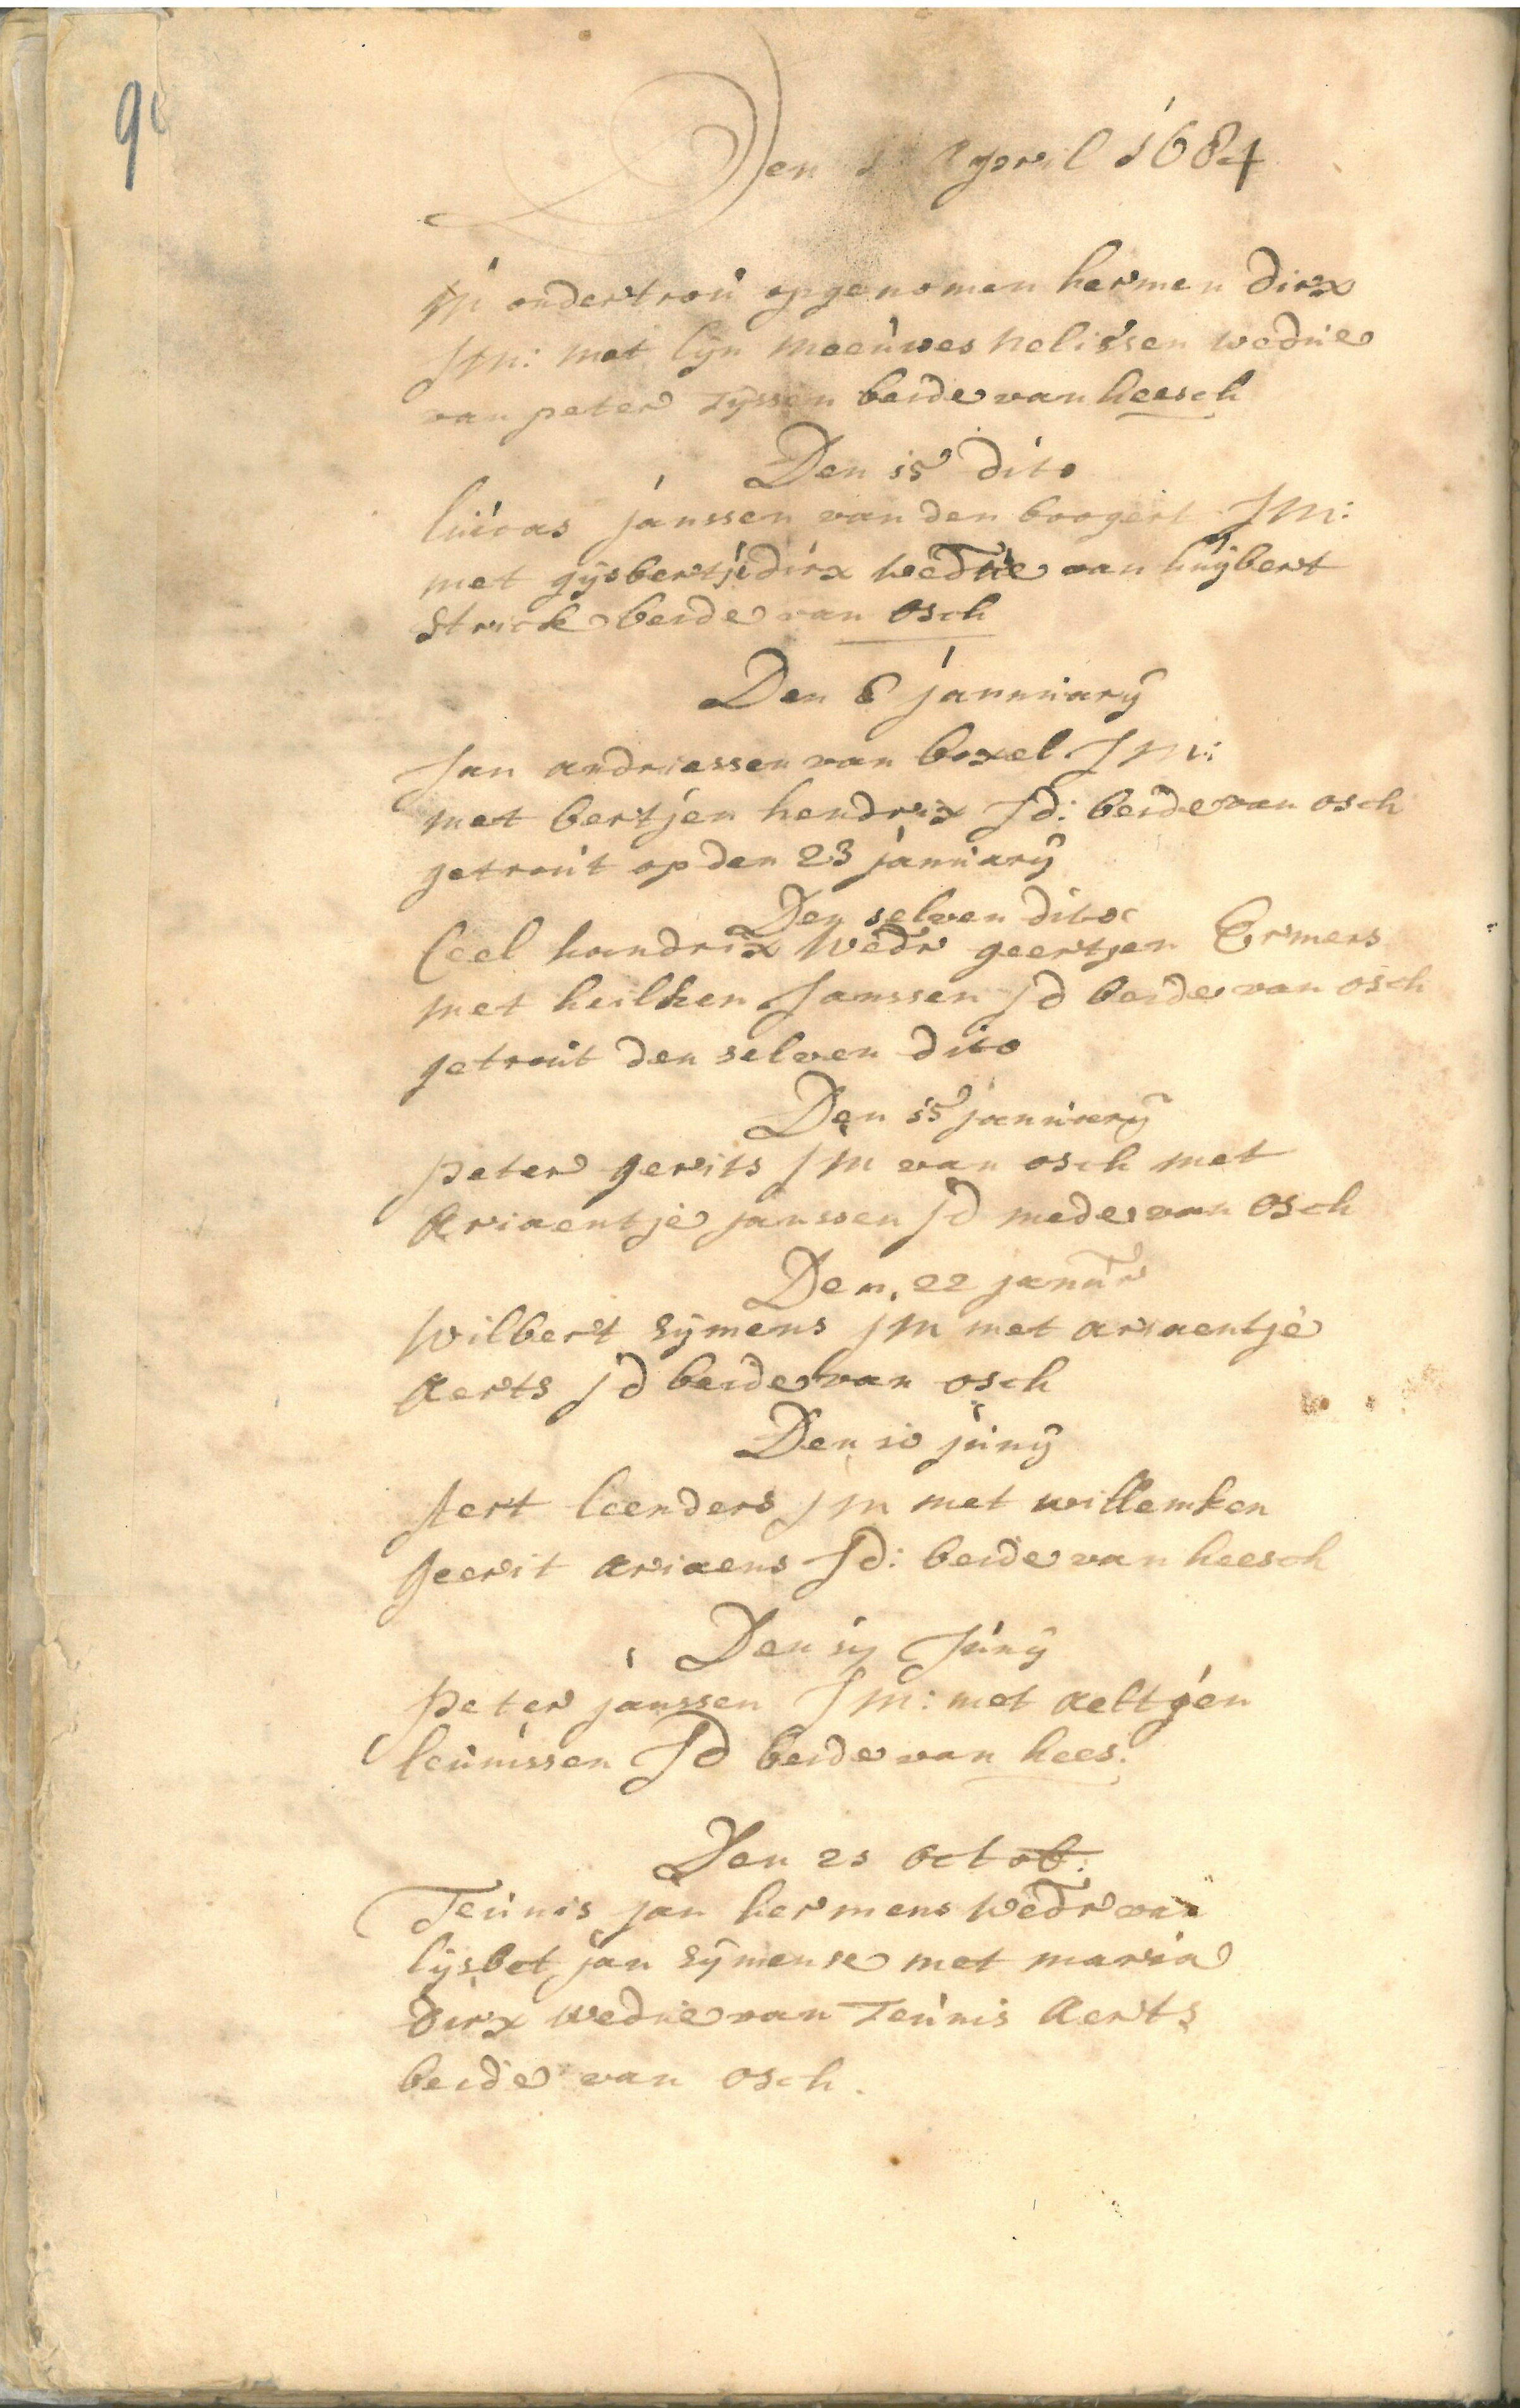 Den 1 April 1684
In ondertrou opgenomen hermen dirx
JM: met lijn meeuwes nelissen wedue
van peter Tyssen beide van heesch
Den 15 dito
lucas janssen van den boogert JM:
met gijsbertje dirx wedue van huijbert
strick beide van osch
Den 8 jannuary
Jan andriessen van boxel JM:
met bertjen hendrix Jd: beide van osch
getrout op den 23 january
Den selven dito
Ceel handrix wedr geertjen Ermers
met heilken Janssen Jd beide van osch
getrout den selven dito
Den 15 january
peter gerits JM van osch met
Ariaentje janssen Jd mede van osch
Den 22 januar
Wilbert sijmens JM met ariaentje
Aerts Jd beide van osch
Den 10 juny
Aert leenders JM met willemken
geerit ariaens Jd: beide van heesch
Den Juny
Peter janssen JM: met aeltjen
teunissen Jd beide van hees.
Den octob:
Teunis jan hermens wedr van
lijsbet jan sijmense met maria
dirx wedue van Teunis Aerts
beide van osch.